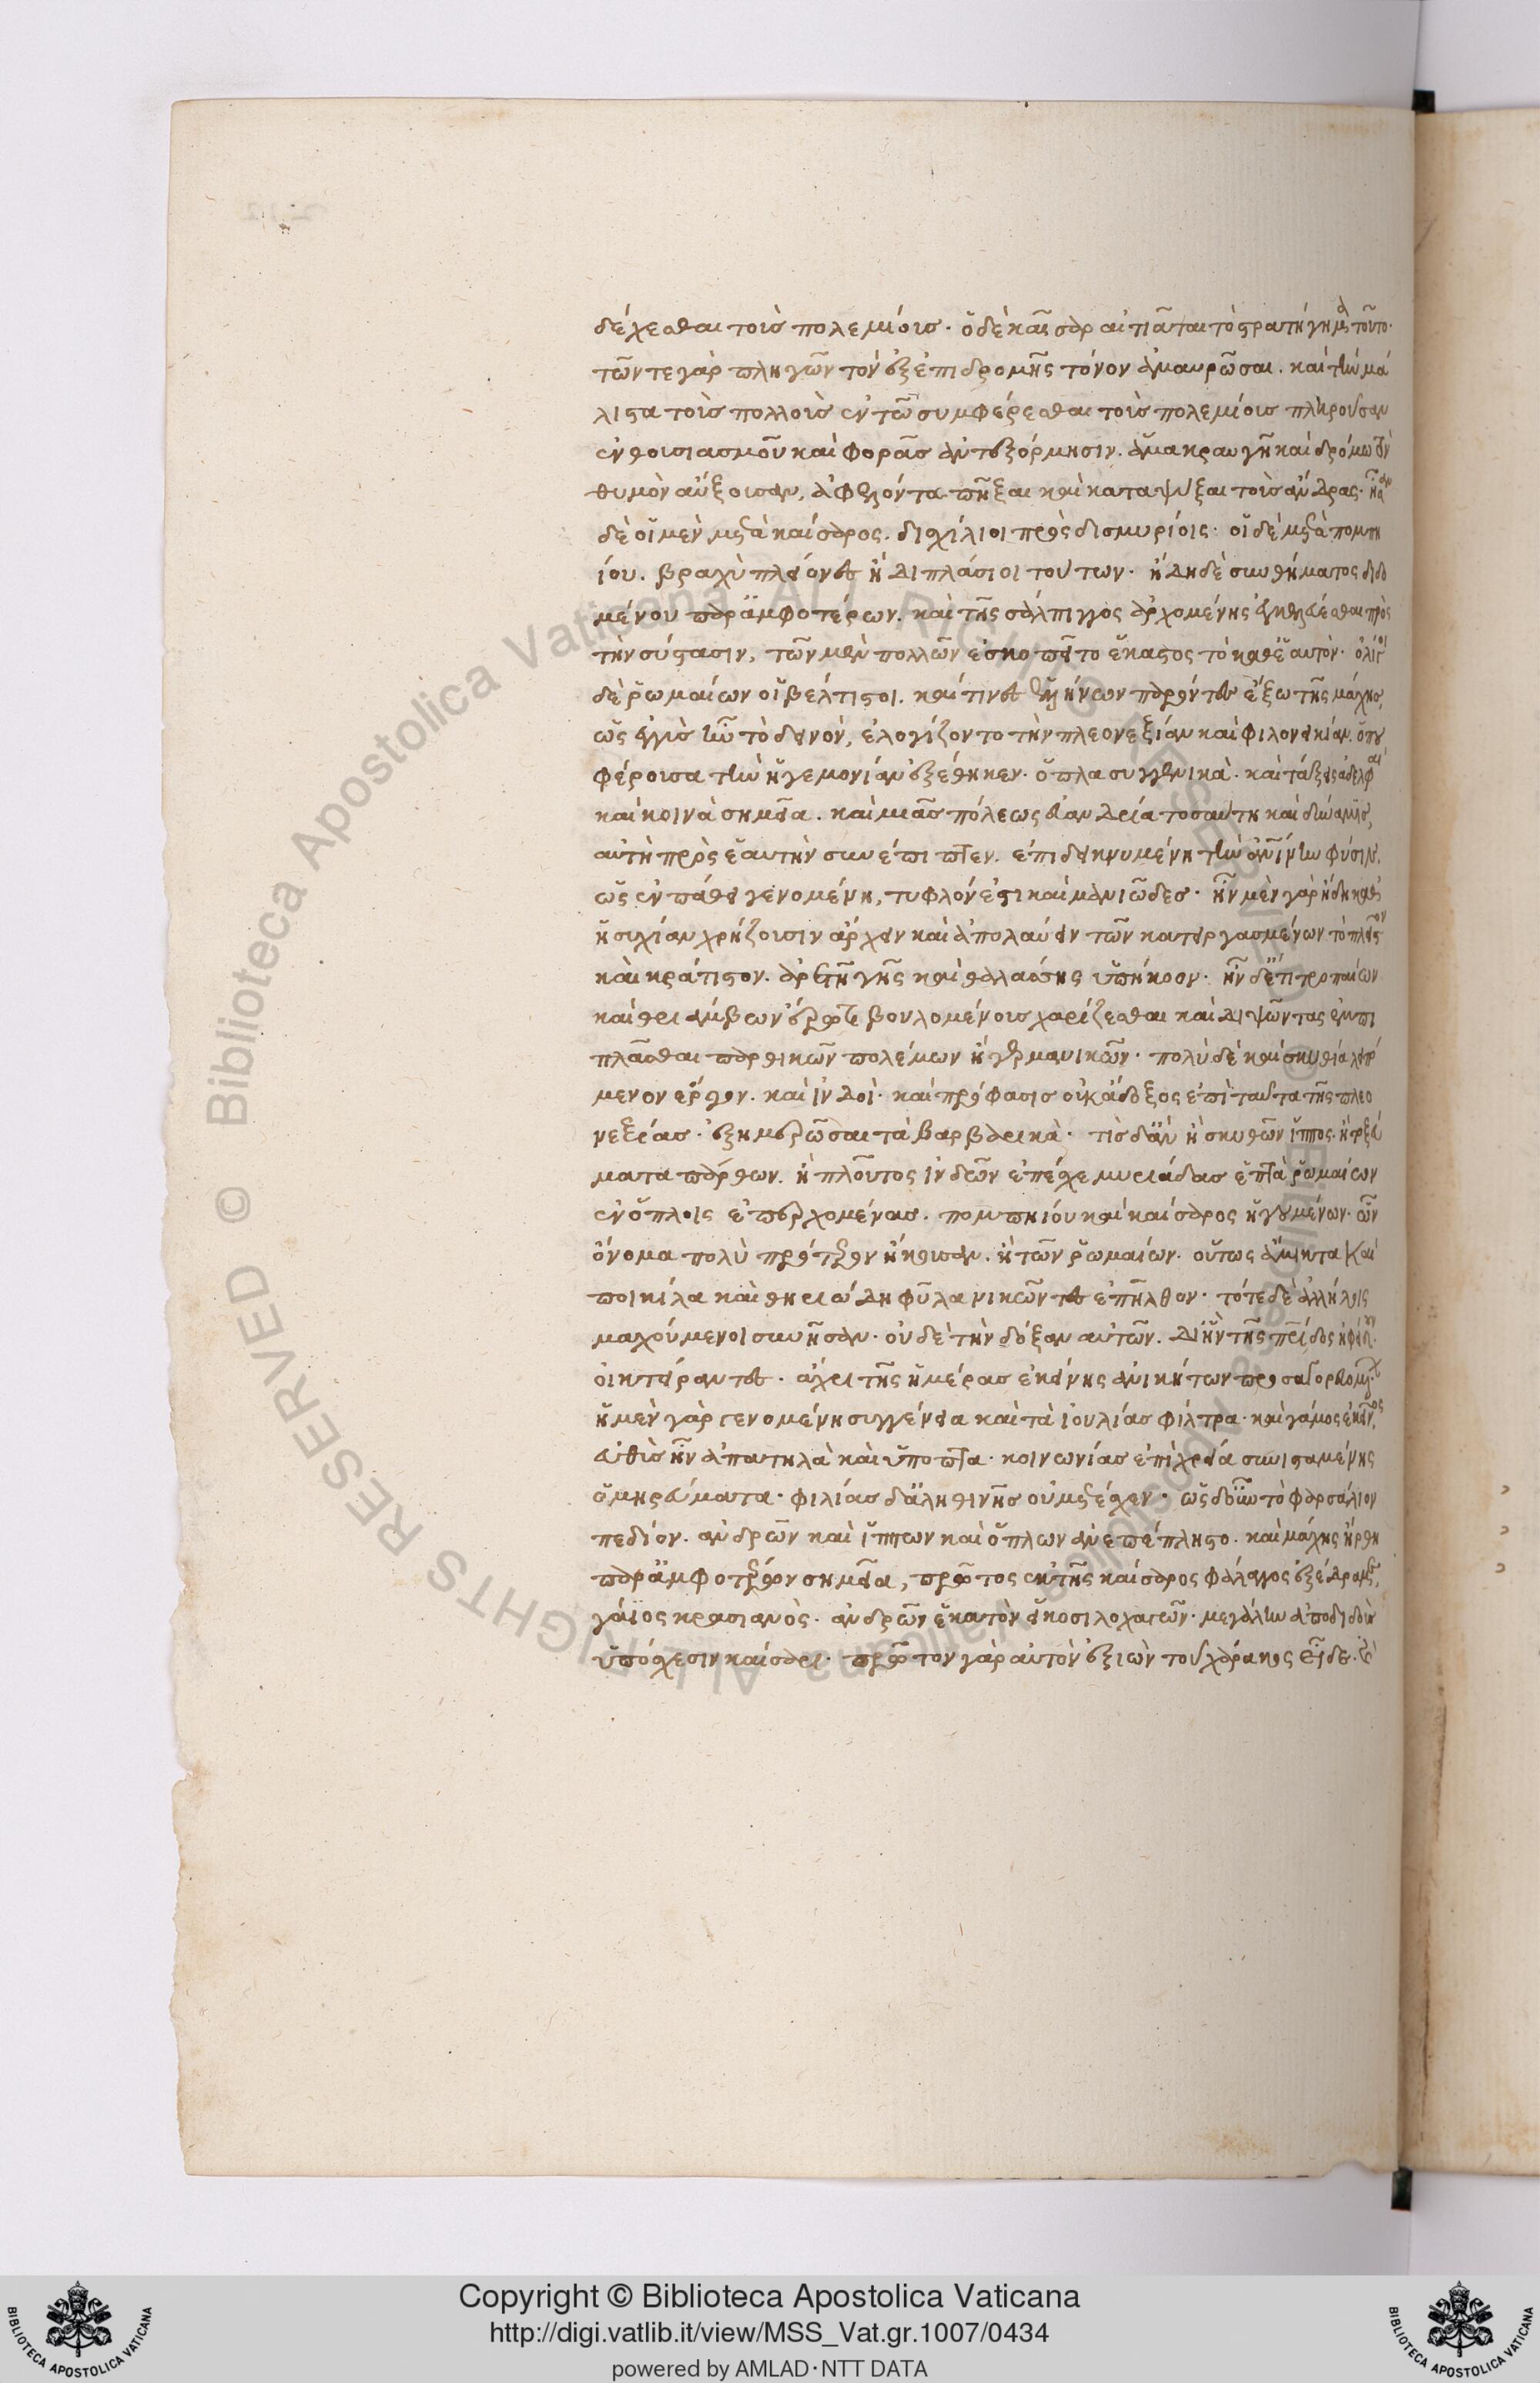 δέχεσθαι τοὺς πολεμίους· ὁ δὲ καῖσαρ αἰτιᾶται τὸ στρατήγημα τοῦτο·
τῶν τε γὰρ πληγῶν τὸν ἐξ ἐπιδρομῆς τόνον ἀμαυρῶσαι. καὶ τὴν μά
λιστα τοὺς πολλοὺς ἐν τῶ συμφέρεσθαι τοῖς πολεμίοις πληροῦσαν
ἐνθουσιασμοῦ καὶ φορᾶς ἀντεξόρμησιν. ἅμα κραυγῆ καὶ δρόμω τὸν
θυμὸν αὔξουσαν, ἀφελόντα πῆξαι καὶ καταψύξαι τοὺς ἄνδρας· ἦσαν
δὲ οἱ μὲν μετὰ καίσαρος. δισχίλιοι πρὸς δισμυρίοις· οἱ δὲ μετὰ πομπη
ίου. βραχὺ πλείονες ἢ διπλάσιοι τούτων· ἤδη δὲ συνθήματος διδο
μένου παρ' ἀμφοτέρων. καὶ τῆς σάλπιγγος ἀρχομένης ἐγκελεύεσθαι πρὸς
τὴν σύστασιν, τῶν μὲν πολλῶν ἐσκοπεῖτο ἕκαστος τὸ καθ' ἑαυτὸν· ὀλίγοι
δὲ ῥωμαίων οἱ βέλτιστοι. καί τινες ἑλλήνων παρόντες ἔξω τῆς μάχης,
ὡς ἐγγὺς ἦν τὸ δεινὸν, ἐλογίζοντο τὴν πλεονεξίαν καὶ φιλονεικίαν. ὅπου
φέρουσα τὴν ἡγεμονίαν ἐξέθηκεν· ὅπλα συγγενικὰ. καὶ τάξεις ἀδελφαὶ
καὶ κοινὰ σημεῖα. καὶ μιᾶς πόλεως εὐανδρία τοσαύτη καὶ δύναμις,
αὐτὴ πρὸς ἑαυτὴν συνέπιπτεν. ἐπιδεικνυμένη τὴν ἀνθρωπίνην φύσιν.
ὡς ἐν πάθει γενομένη, τυφλόν ἐστι καὶ μανιῶδες· ἦν μὲν γὰρ ἤδη καθ'
ἡσυχίαν χρήζουσιν ἄρχειν καὶ ἀπολαύειν τῶν κατειργασμένων τὸ πλεῖστον
καὶ κράτιστον. ἀρετῆ γῆς καὶ θαλάσσης ὑπήκοον· ἦν δ' ἔτι τροπαίων
καὶ θριάμβων ἔρωτι βουλομένους χαρίζεσθαι καὶ διψῶντας ἐμπι
πλᾶσθαι παρθικῶν πολέμων ἢ γερμανικῶν· πολὺ δὲ καὶ σκυθία λειπό
μενον ἔργον. καὶ ἰνδοὶ· καὶ πρόφασις οὐκ ἄδοξος ἐπὶ ταῦτα τῆς πλεο
νεξίας· ἐξημερῶσαι τὰ βαρβαρικὰ· τίς δ' ἂν ἢ σκυθῶν ἵππος. ἢ τοξεύ
ματα πάρθων. ἢ πλοῦτος ἰνδῶν ἐπέσχε μυριάδας ἑπτὰ ῥωμαίων
ἐν ὅπλοις ἐπερχομένας. πομπηίου καὶ καίσαρος ἡγουμένων· ὧν
ὄνομα πολὺ πρότερον ἤκουσαν. ἢ τῶν ῥωμαίων. οὕτως ἄμικτα καὶ
ποικίλα καὶ θηριώδη φῦλα νικῶντες ἐπῆλθον· τότε δὲ ἀλλήλοις
μαχούμενοι συνήεσαν· οὐδὲ τὴν δόξαν αὐτῶν. δι' ἣν τῆς πατρίδος ἠφείδουν.
οἰκτείραντες. ἄχρι τῆς ἡμέρας ἐκείνης ἀνικήτων προσαγορευομένων·
ἡ μὲν γὰρ γενομένη συγγένεια καὶ τὰ ἰουλίας φίλτρα. καὶ γάμος ἐκεῖνος,
εὐθὺς ἦν ἀπατηλὰ καὶ ὕποπτα· κοινωνίας ἐπὶ χρεία συνισταμένης
ὁμηρεύματα· φιλίας δ' ἀληθινῆς οὐ μετέσχεν. ὡς δ' οὖν τὸ φαρσάλιον
πεδίον. ἀνδρῶν καὶ ἵππων καὶ ὅπλων ἀνεπέπληστο. καὶ μάχης ἤρθη
παρ' ἀμφοτέρων σημεῖα, πρῶτος ἐκ τῆς καίσαρος φάλαγγος ἐξέδραμε,
γάϊος κρασιανὸς· ἀνδρῶν ἑκατὸν εἴκοσι λοχαγῶν· μεγάλην ἀποδιδοὺς
ὑπόσχεσιν καίσαρι· πρῶτον γὰρ αὐτὸν ἐξιὼν τοῦ χάρακος εἶδε. καὶ
Copyright © Biblioteca Apostolica Vaticana
http://digi.vatlib.it/view/MSS_Vat.gr.1007/0434
powered by AMLAD·NTT DATA